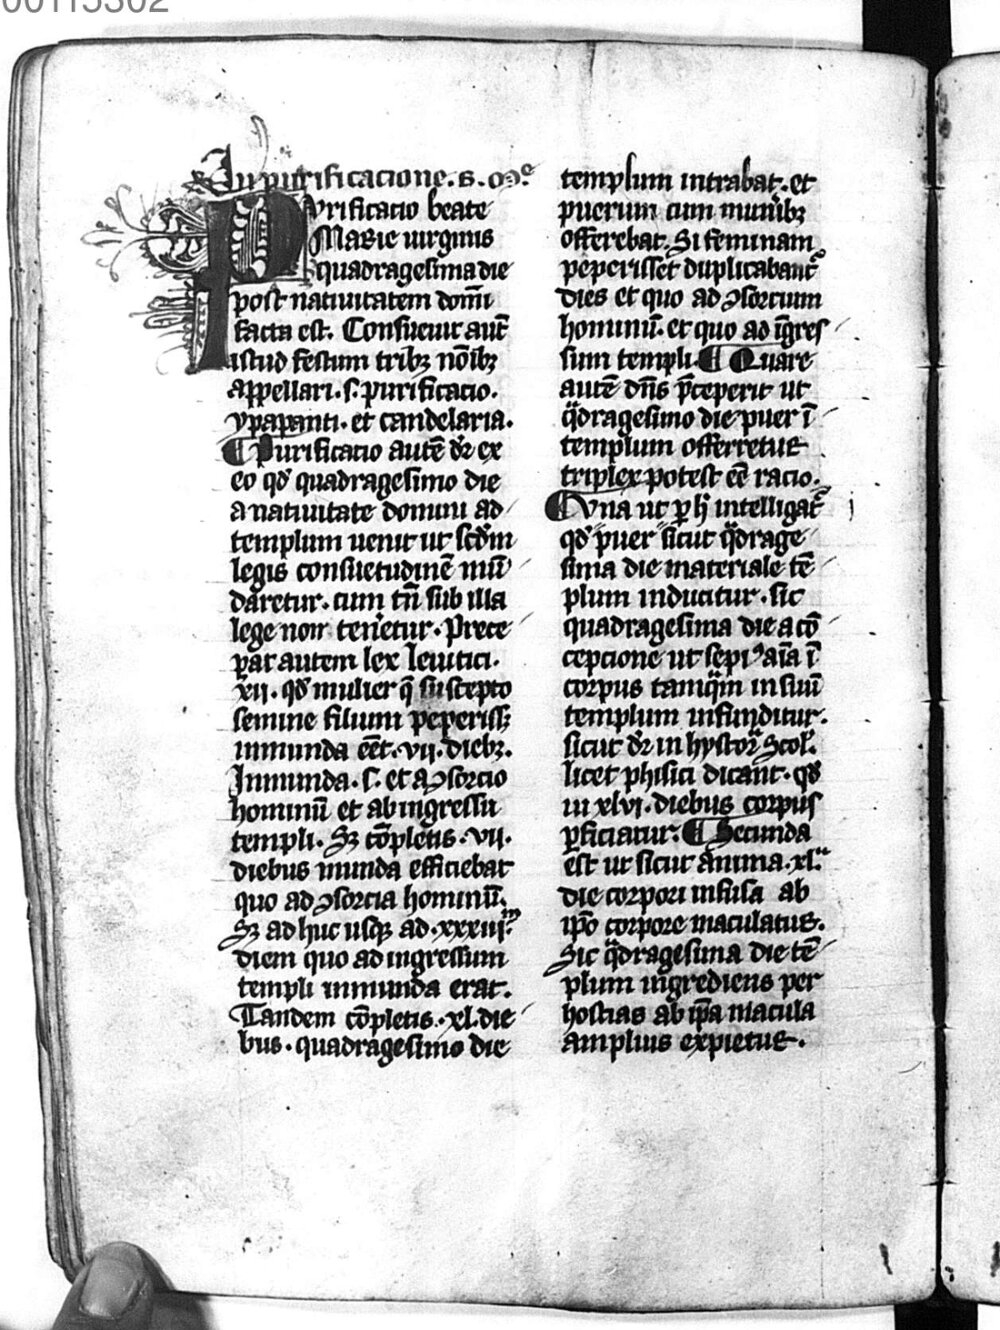 00115302
In purificacione. s. Mᵉ
Purificatio beate
Marie uirginis
quadragesima die
post natiuitatem dom̄i
facta est. Consueuit aut̄
istud festum tribꝫ nōibꝫ
appellari. s. purificacio.
ypapanti. et candelaria.
¶ Purificatio autē dr̄ ex
eo qd̓ quadragesimo die
a natiuitate domini ad
templum uenit ut scd̓m
legis consuetudinē mū
daretur. cum tn̄ sub illa
lege non tenetur. Prece
par autem lex leuitici.
xii. qd̓ mulier q̄ suscepto
semine filium peperissꝫ
inmunda eēt. vii. diebꝫ.
Inmunda. s. et a ꝯsorcio
hominū et ab ingressu
templi. Sꝫ cōpletis. vii.
diebus munda efficiebat᷑
quo ad ꝯsorcia hominū.
Sꝫ ad huc usqꝫ ad. xxxiijᵐ
diem quo ad ingressum
templi inmunda erat.
Tandem cōpletis. xl. die
bus. quadragesimo die
templum intrabat. et
puerum cum munibꝫ
offerebat. Si feminam
peperisset duplicabant᷑
dies et quo ad ꝯsorcium
hominū. et quo ad īgres
sum templi. ¶ Quare
autē dn̄s p̄ceperit ut
qͣdragesimo die puer ī
templum offerretur
triplex potest eē racio.
¶ Vna ut ꝑ h̓ intelligat᷑
qd̓ puer sicut qͣdrage
sima die materiale tē
plum inducitur. sic
quadragesima die a cō
cepcione ut sepiꝰ aīa ī
corpus tamqͣm in suū
templum infunditur.
sicut dr̄ in hystor̄ Scol̓.
licet phisici dicant. qd̓
in xlvi. diebus corpus
ꝑficiatur. ¶ Secunda
est ut sicut anima. xl.ᵃ
die corpori infusa ab
ip̄o corpore maculatur.
Sic qͣdragesima die tē
plum ingrediens per
hostias ab ip̄a macula
amplius expietur.